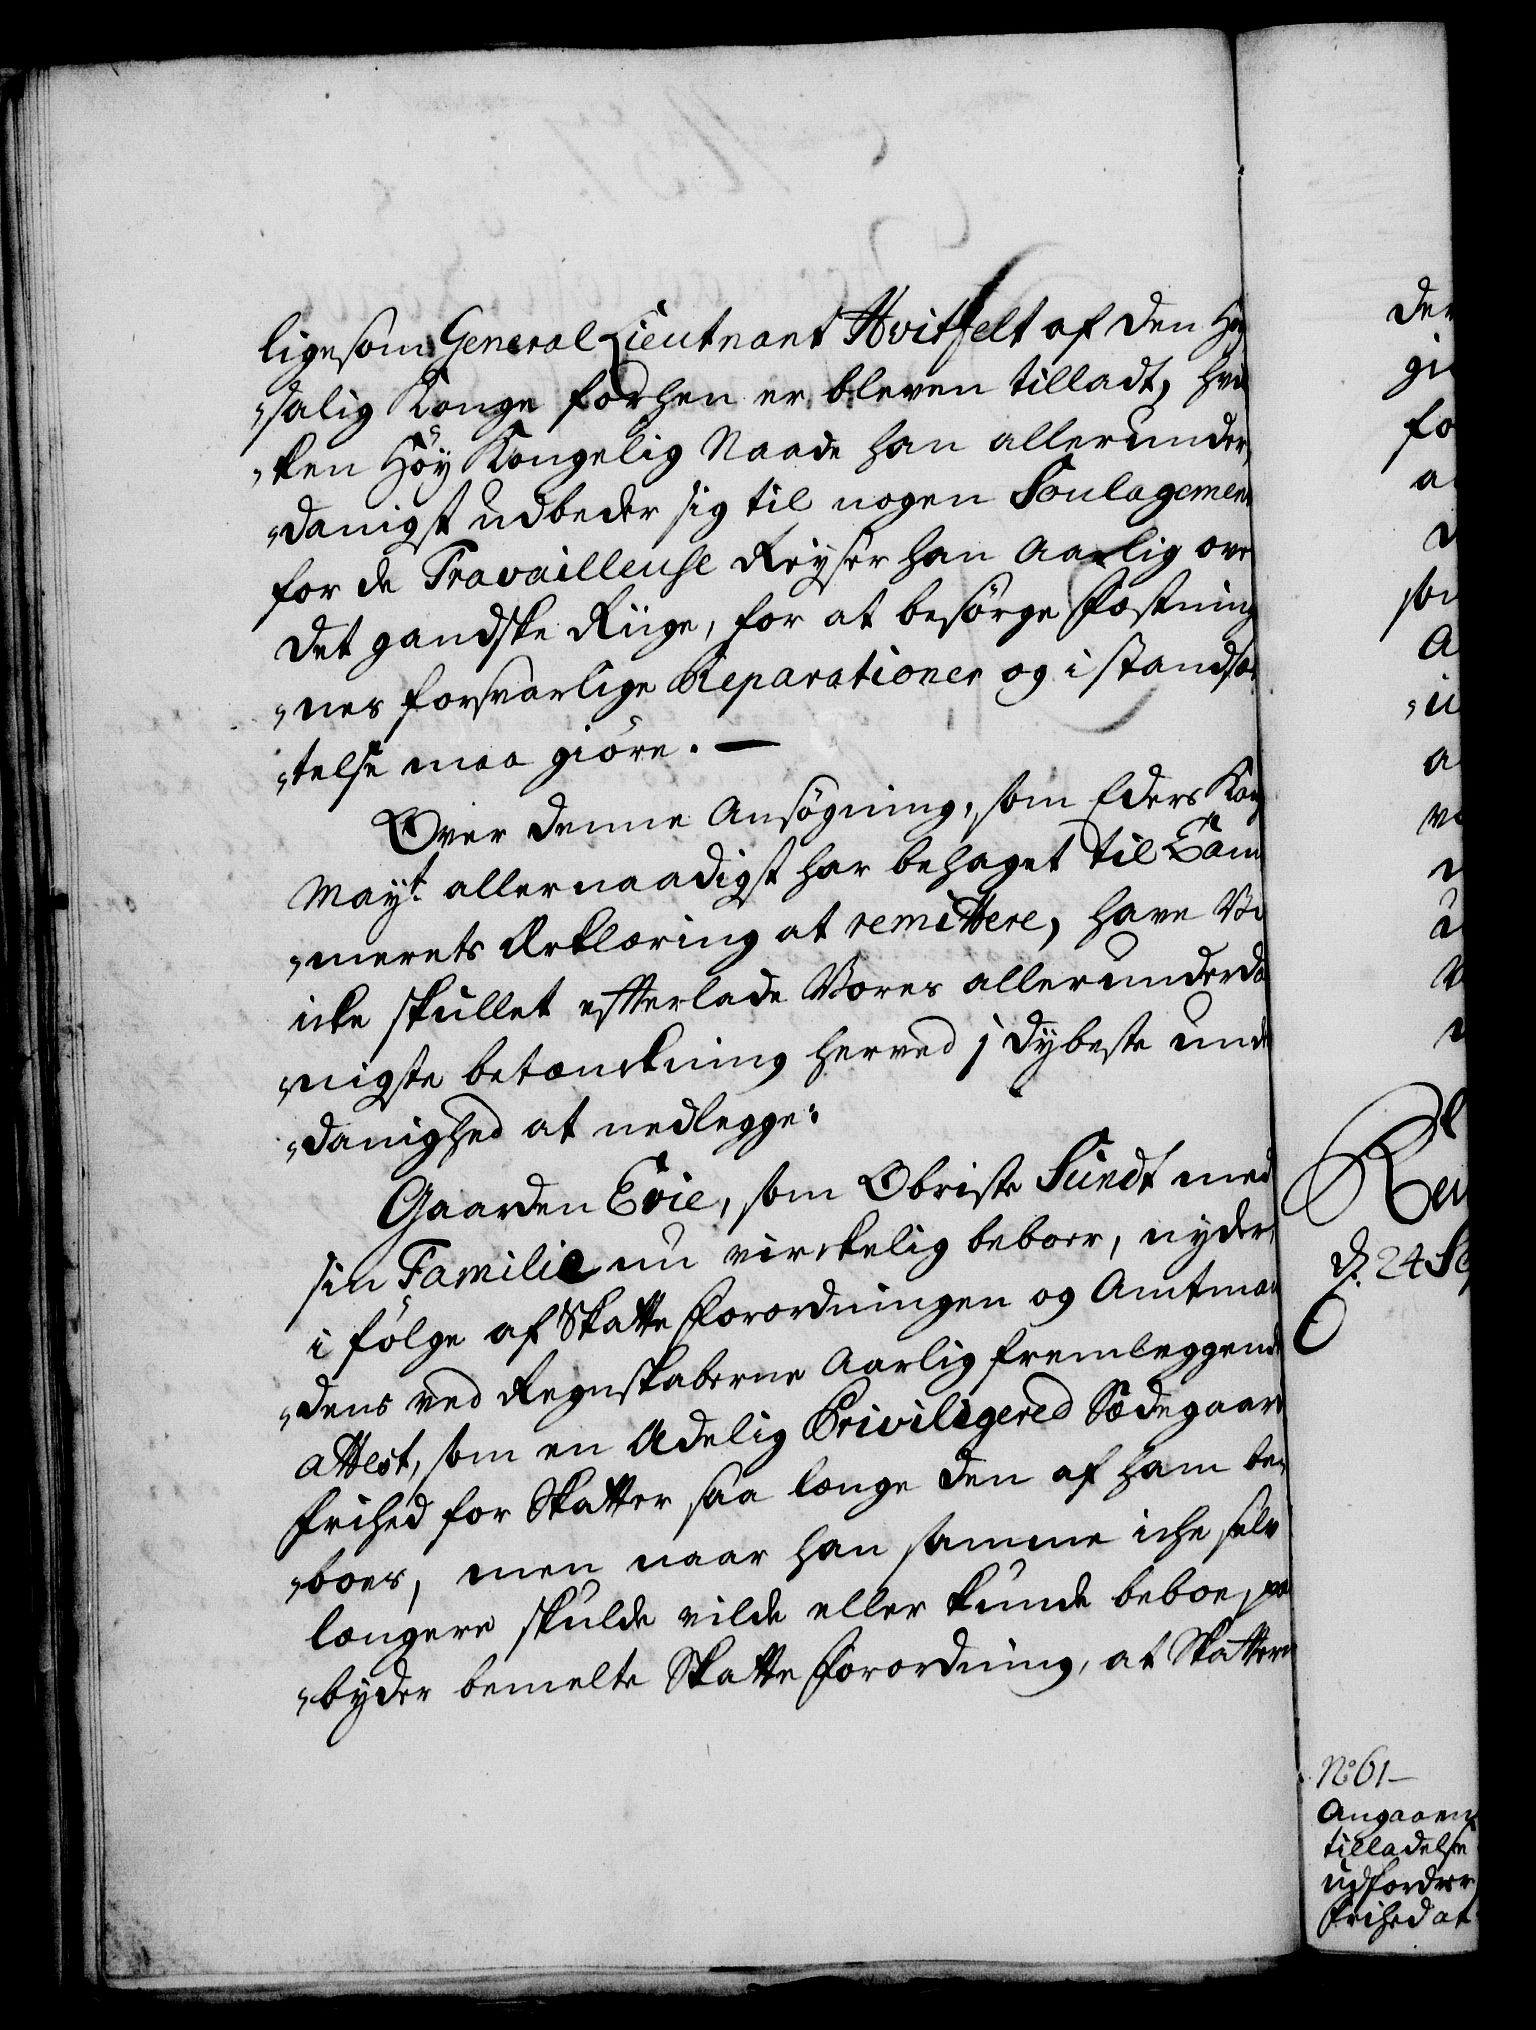 ligesom General Lieutnant Hvitfelt af den Høy
„salig Konge forhen er bleven tilladt, hvil
„ken Höy Kongelig Naade han allerunder„
„danigst udbeder sig til nogen Soulagement
for de Travailleuse Reyser han Aarlig over
det gandske Riige, for at besörge Fæstning
„nes forsvarlige Reparationer og i standsæ
„telse maa giöre. —
Over denne Ansögning, som Eders Kong
Mayt. allernaadigst har behaget til Cam
„merets Erklæring at remittere, have Vi
icke skullet efterlade Vores allerunderda
„nigste betænckning herved i dybeste under
„danighed at nedlegge:
Gaarden Evie, som Obriste Sundt med
sin Familie nu virckelig beboer, nyder,
i fölge af Skatte Forordningen og Amtman
„dens ved Regnskaberne Aarlig fremleggende
attest, som en Adelig Privilegered Sædegaard
frihed for Skatter saa længe den af ham be„
„boes, men naar han samme icke selv
længere skulde vilde eller kunde beboe, paa
„byder bemelte Skatte Forordning, at Skatterne
der
gi
fo
a
som
A
„u
a
ve
d. 24 Sep
No 61 —
Angaaen
tilladelse
udfordrer
frihed at